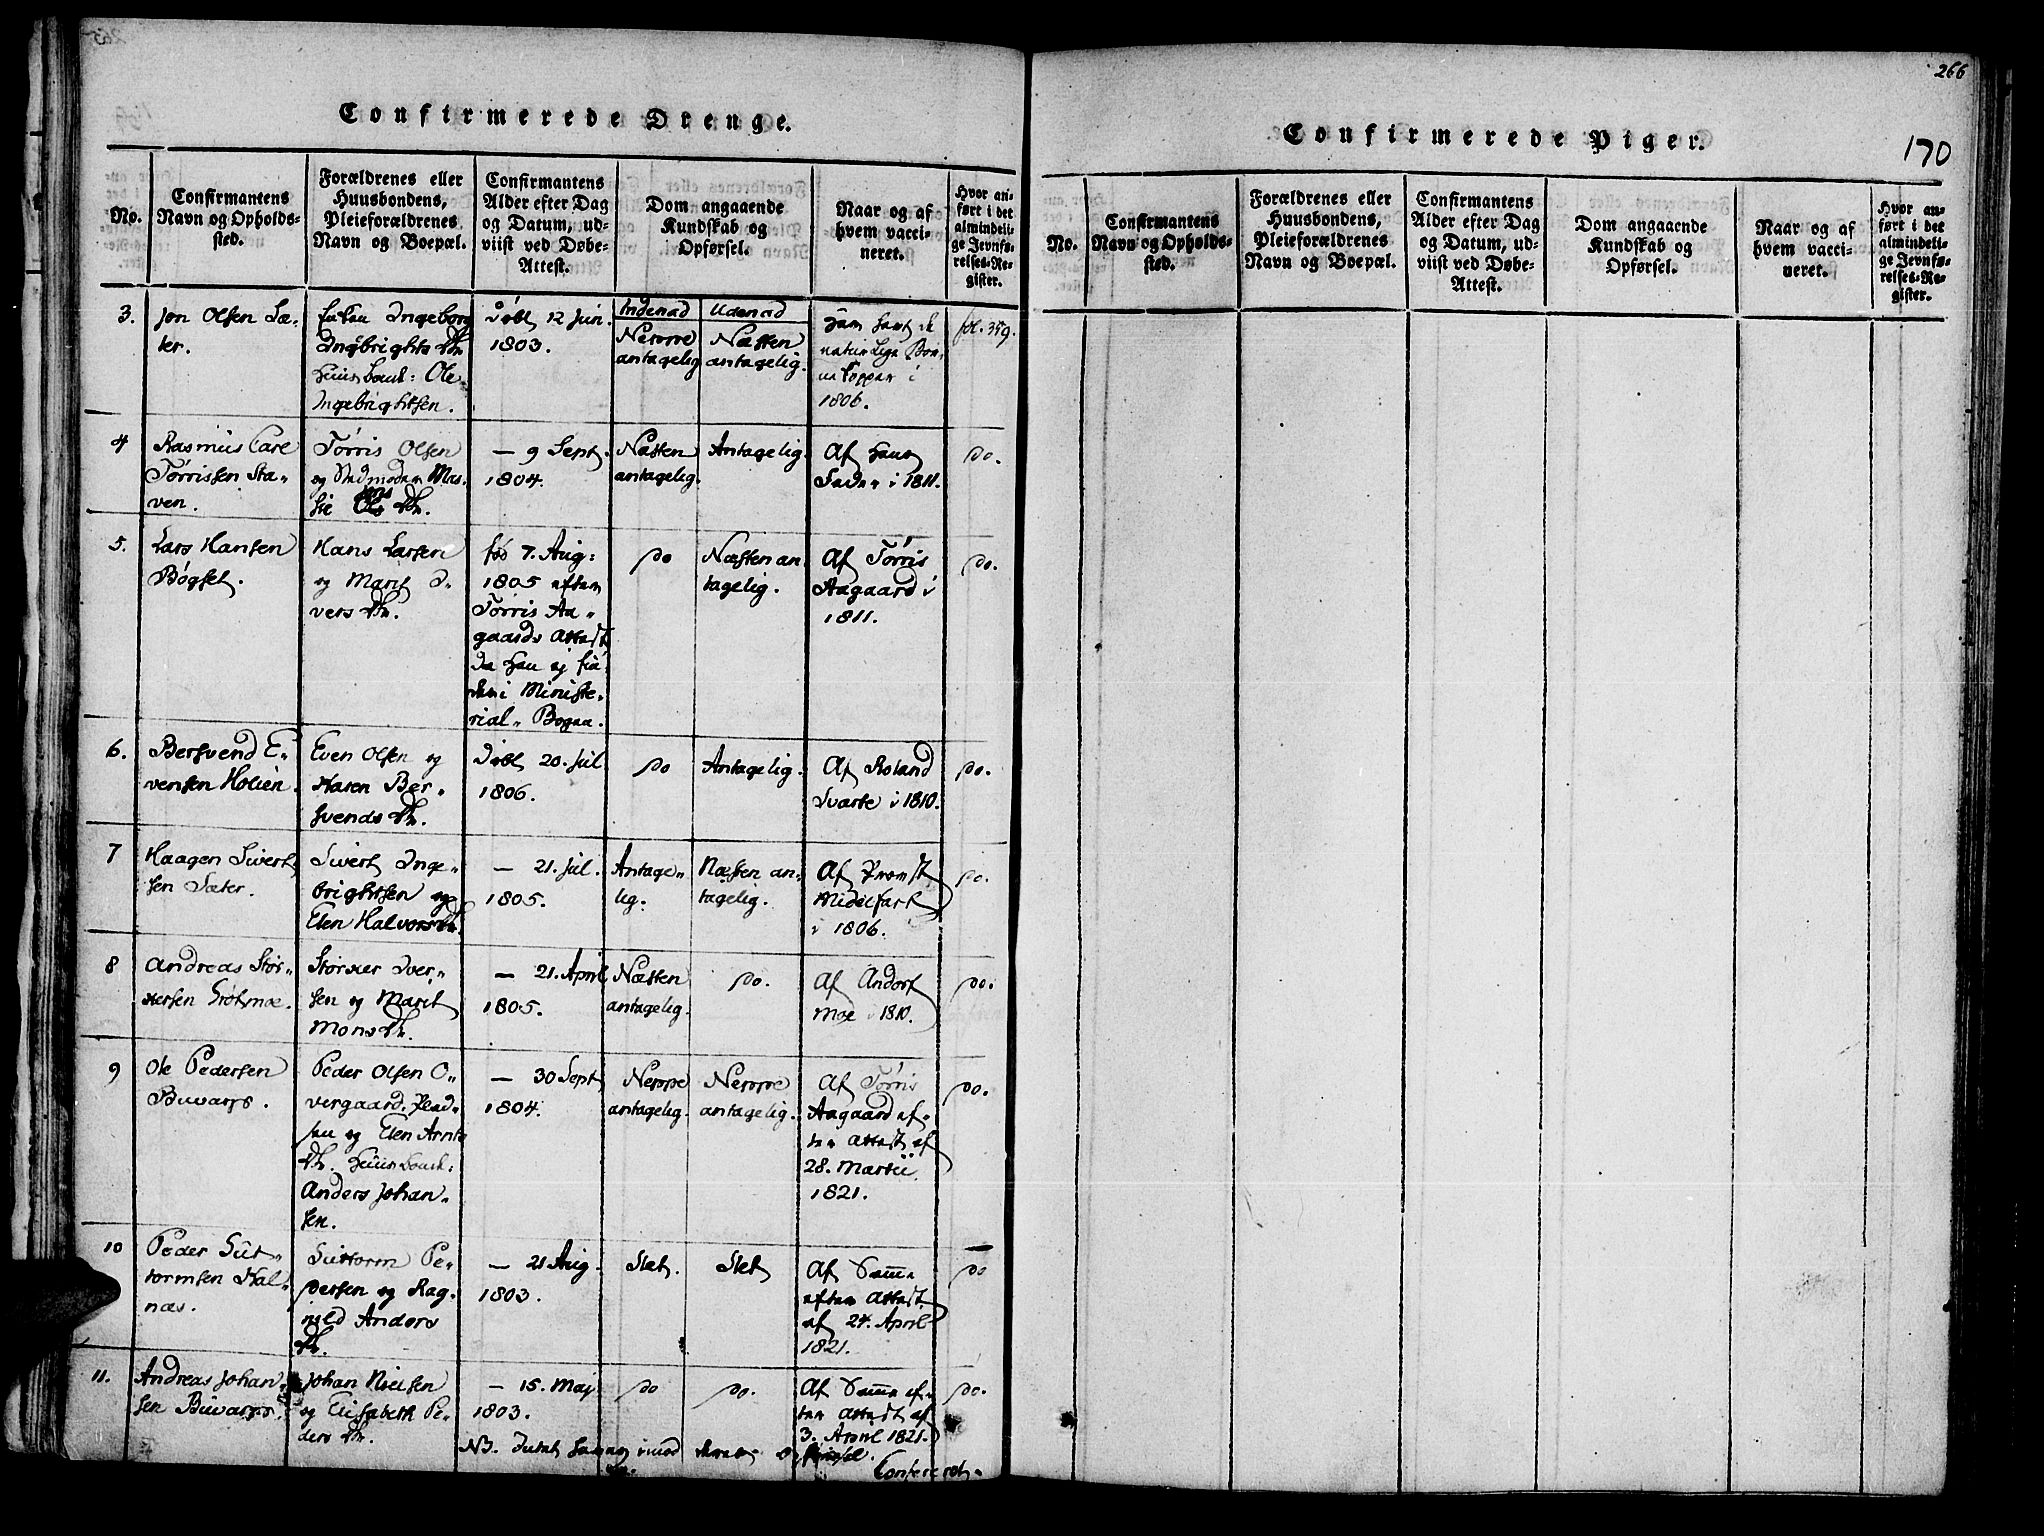 265
Confirmerede Drenge.
No.
Confirmantens
Navn og Opholds-
sted.
Forældrenes eller
Huusbondens,
Pleieforældrenes
Navn og Boepæl.
Confirmantens
Alder efter Dag
og Datum, ud-
viist ved Døbe-
Attest.
Dom angaaende
Kundskab og
Opførsel.
Naar og af
hvem vacci-
neret.
Hvor an-
ført i det
almindeli-
ge Jevnfø-
relses-Re-
gister.
3.
Jon Olsen Sæ-
ter.
Enken Ingeborg
Ingbrights Dr.
Huusbond: Ole
Ingebrightsen.
Døbt 12 Jun.
1803.
Indenad
Neppe
antagelig
Udenad
Næsten
antagelig.
Ham havt de
naturlige Bør-
nekopper i
1806.
fol. 359.
4
Rasmus Carl
Tørrissen Sta-
ven.
Tørris Olsen
og Stedmoder Mas-
sie Ols Dr.
— 9 Sept.
1804.
Næsten
antagelig.
Antagelig.
Af Hans
Fader i 1811.
do.
5.
Lars Hansen
Bøgset.
Hans Larsen
og Marit I-
vers Dr.
fød 7. Aug:
1805 efter
Tørris Aa-
gaards Attest
da han ej fin-
des i Ministe-
rial-Bogen.
do
Næsten an-
tagelig.
Af Tørris
Aagaard i
1811.
do.
6.
Bersvend E-
vensen Holien.
Even Olsen og
Karen Ber-
svends Dr.
Døbt 20. Jul
1806.
do
Antagelig.
Af Roland
Svarte i 1810.
do.
7
Haagen Sivert-
sen Sæter.
Sivert Inge-
brightsen og
Elen Halvors Dr.
— 21. Jul.
1805.
Antage-
lig.
Næsten an-
tagelig.
Af Provst
Middelfart
i 1806.
do.
8
Andreas Stør-
kersen Grøtmoe.
Størker Iver-
sen og Marit
Mons Dr.
— 21. April
1805.
Næsten
antagelig.
do.
Af Andors
Moe i 1810.
do.
9
Ole Pedersen
Buvarps.
Peder Olsen O-
vergaard. Plad-
sen og Elen Arnts
Dr. Huusbond:
Anders Johan-
sen.
— 30 Sept
1804.
Neppe
antagelig.
Neppe
antagelig.
Af Tørris
Aagaard ef-
ter Attest af
28. Martii
1821.
do.
10
Peder Gut-
tormsen Hal-
næs.
Guttorm Pe-
dersen og Rag-
nild Anders
Dr.
— 21 Aug.
1803.
Slet.
Slet
Af Samme
efter Attest
af 24. April
1821.
do
11.
Andreas Johan-
sen Buvarps.
Johan Nielsen
og Elisabeth Pe-
ders Dr.
— 15. Maj
1803.
do
do.
Af Samme ef-
ter Attest af
3. April 1821.
do.
NB.
266
Confirmerede Piger.
170
No.
Confirmantens
Navn og Opholds-
sted.
Forældrenes eller
Huusbondens,
Pleieforældrenes
Navn og Boepæl.
Confirmantens
Alder efter Dag
og Datum, ud-
viist ved Døbe-
Attest.
Dom angaaende
Kundskab og
Opførsel.
Naar og af
hvem vacci-
neret.
Hvor an-
ført i det
almindeli-
ge Jevnfø-
relses-Re-
gister.